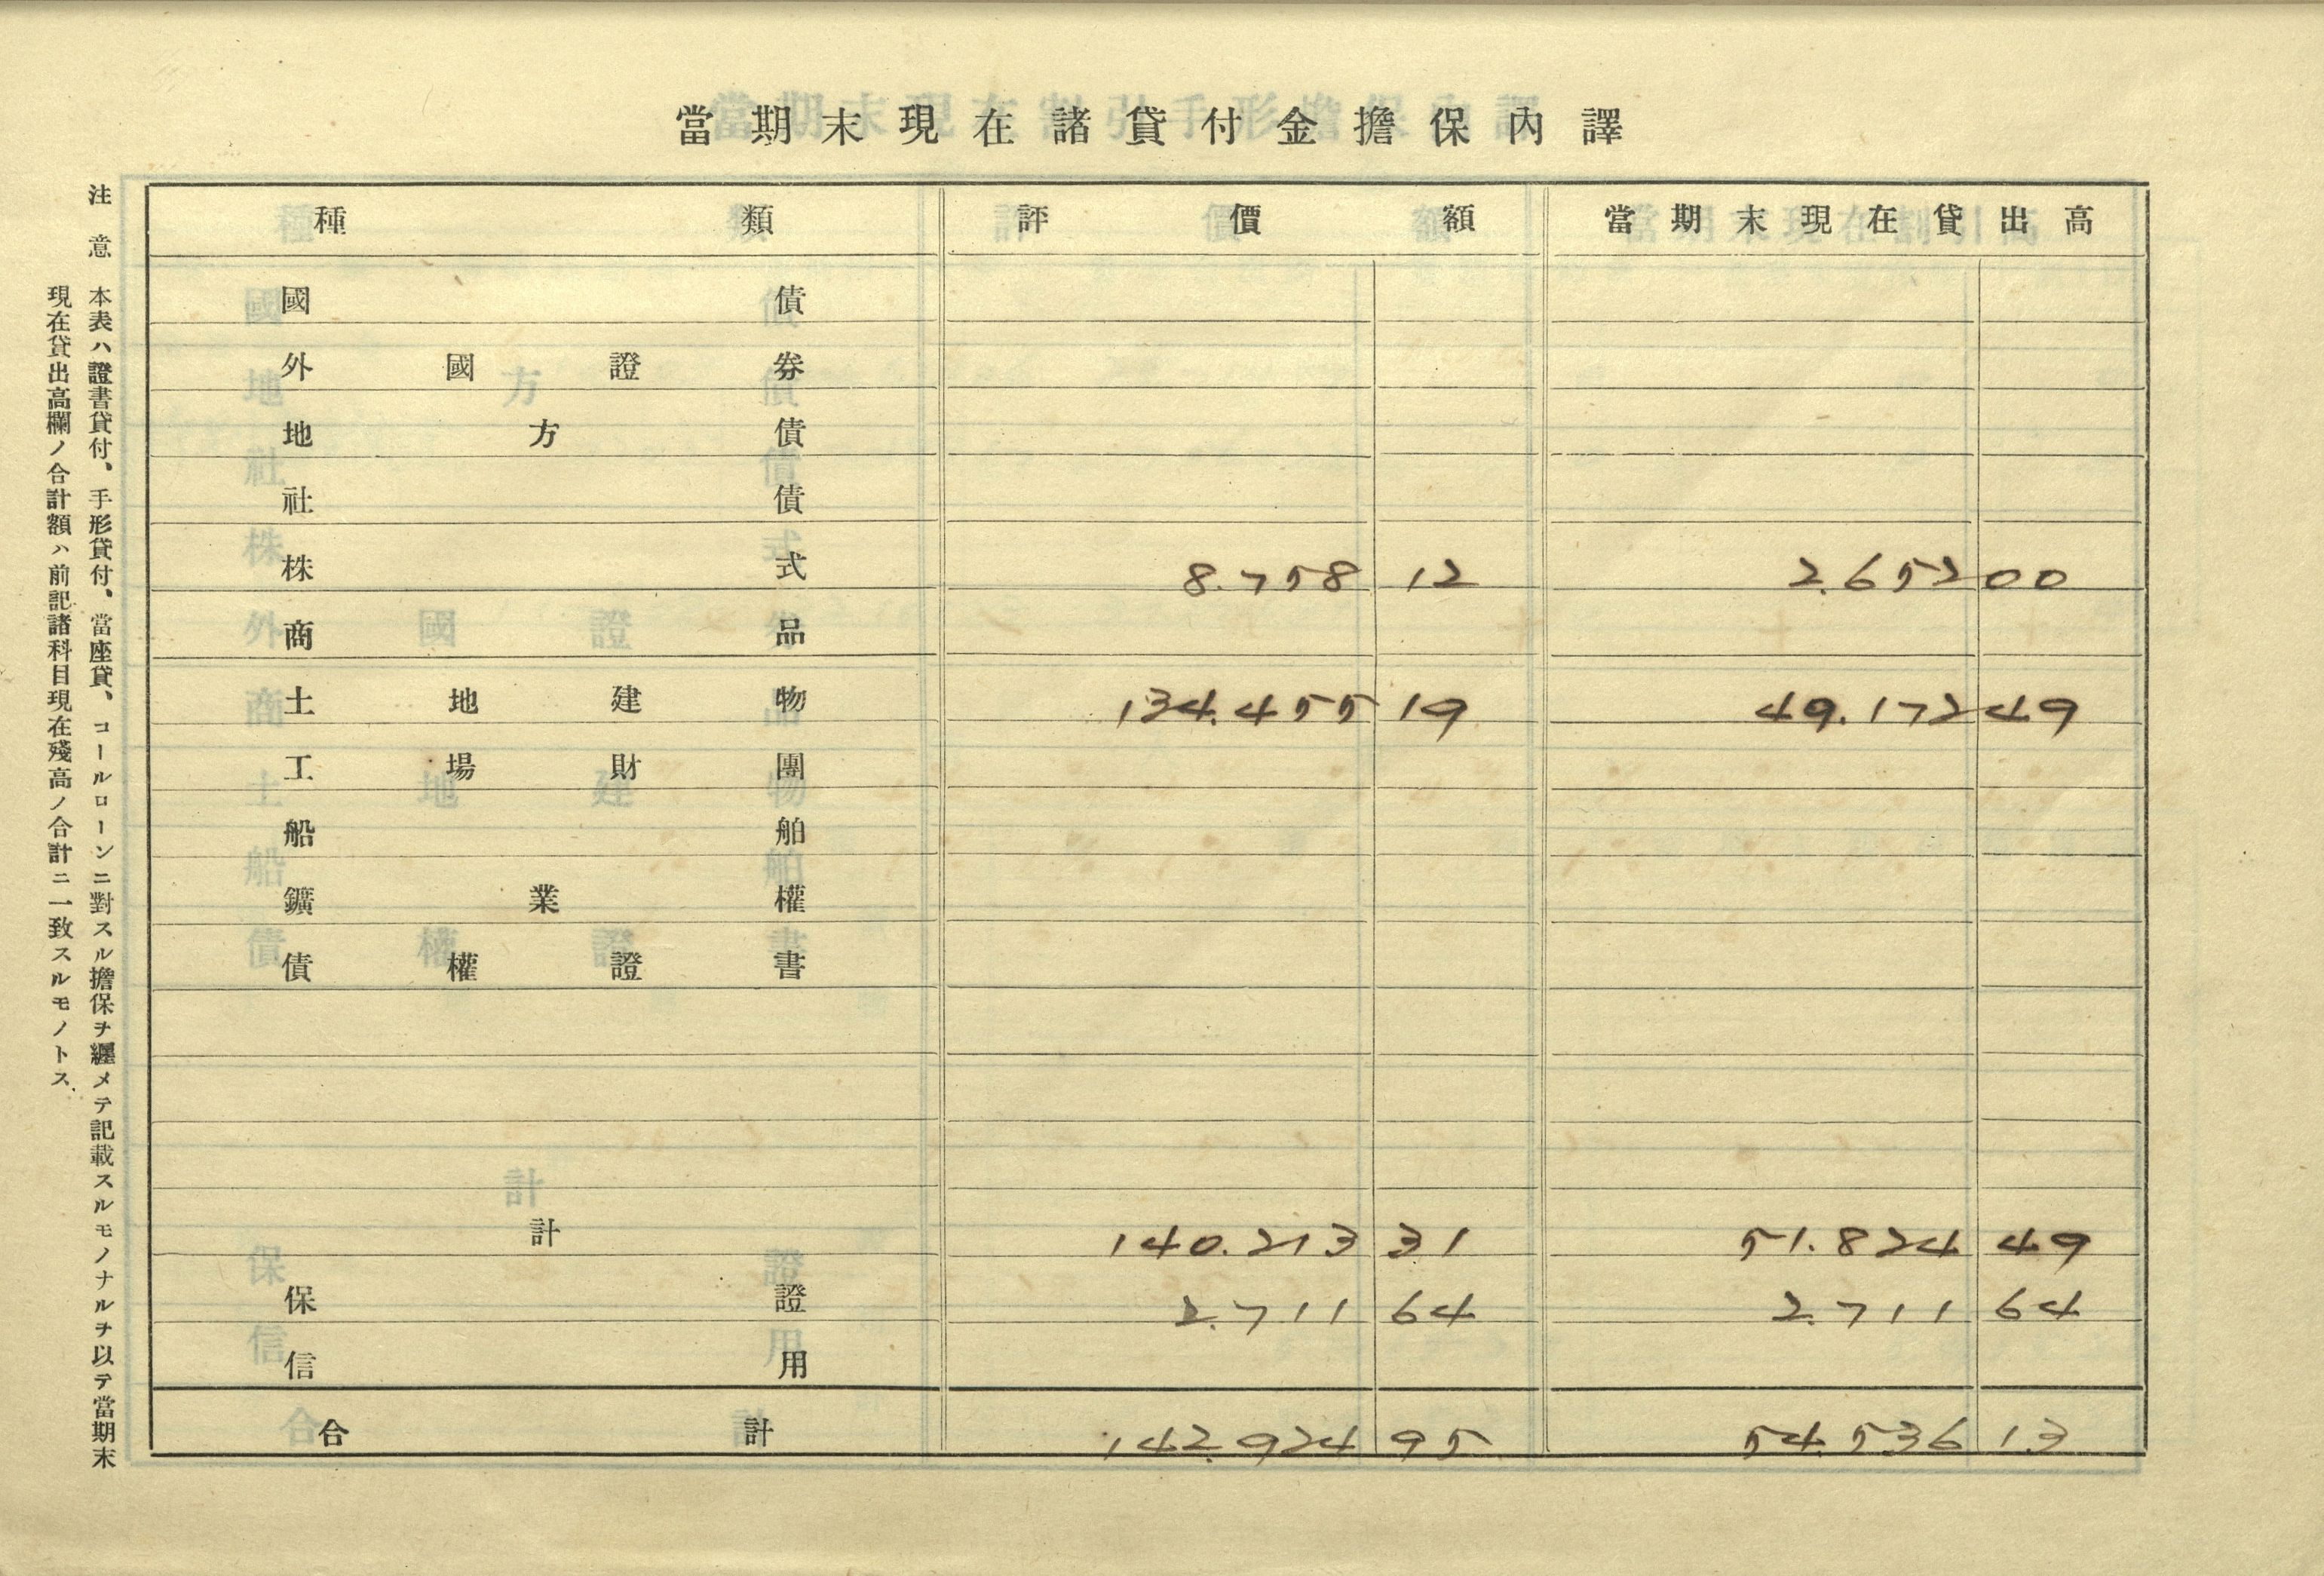 當期末現在諸貸付金擔保內譯
種類 評價額 當期末現在貸出高
國債
外國證券
地方債
社債
株式 8.758 12 2.652 00
商品
土地建物 134.455 19 49.172 49
工場財團
船舶
鑛業權
債權證書
計 140.213 31 51.824 49
保證 2.711 64 2.711 64
信用
合計 142.924 95 54.536 13
注意 本表ハ證書貸付、手形貸付、當座貸、コールローンニ對スル擔保ヲ纒メテ記載スルモノナルヲ以テ當期末
現在貸出高欄ノ合計額ハ前記諸科目現在殘高ノ合計ニ一致スルモノトス